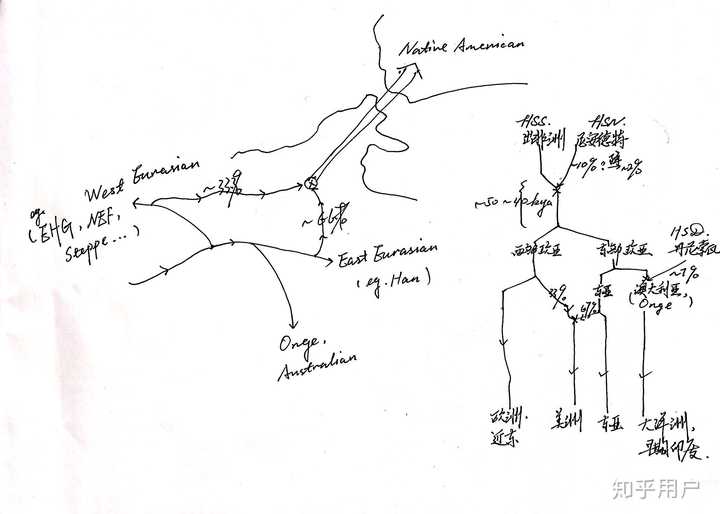 Native American
West Eurasian
eg.
(EHG, NEF,
Steppe...)
~33%
~66%
East Eurasian
(eg. Han)
Onge,
Australian
HSS.
HSN.
尼安德特
~10%?
~2%
~50~40kya
西部欧亚
东部欧亚
丹尼索瓦
~7%
东亚
澳大利亚,
(Onge)
33%
67%
欧洲.
近东
美洲
东亚
大洋洲,
知乎用户